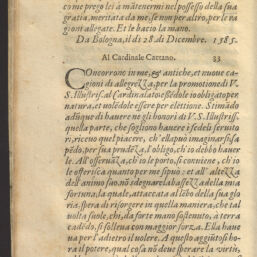 come prego lei à mãtenermi nel possesso della sua
gratia, meritata da me, se non per altro, per le ra
gioni allegate. Et le bacio la mano.
Da Bologna, il dì 28. di Dicembre. 1585.
Al Cardinale Caetano. 33
COncorrono in me, & antiche, et nuove ca
gioni di allegrezza, per la promotione di V.
S. Illustriss. al Cardinalato: essẽdole io obligato per
natura, et volẽdole essere per elettione. Stimãdo
adũque di havere ne gli honori di V. S. Illustriss.
quella parte, che sogliono havere i fedeli servito
ri, riceuo quel piacere, ch'ella può imaginarsi: sa
pẽdo, per sua prudẽza, l'obligo, ch'io debbo haver
le. All'osservãza, ch'io le porto, si conviene, ch'io
le offerisca quanto per me si può: et all'altezza
dell'animo suo, nõ sdegnare la bassezza della mia
fortuna, la quale, attaccata al lẽbo della sua glo
ria, spera di risorgere in quella maniera, che tal
volta suole, chi, da forte mano sostenuto, à terra
cadẽdo, si solleva con maggior forza. Ella hau
ea per l'adietro il volere. A questo aggiũto si ho
ra il potere, qual cosa nõ deve sperare la virtù,